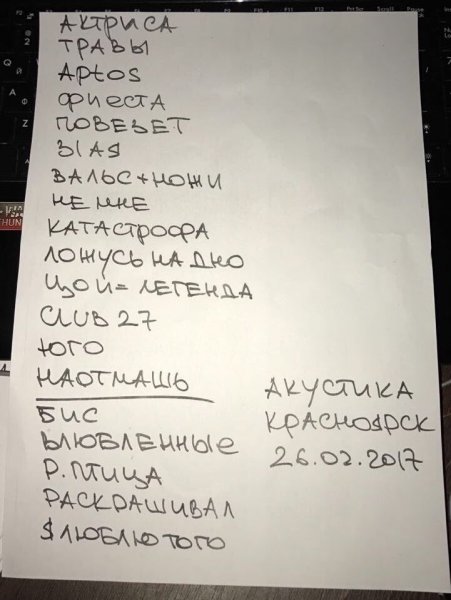 АКТРИСА
ТРАВЫ
Aptos
ФИЕСТА
ПОВЕЗЕТ
BIAS
ВАЛЬС+НОЖИ
НЕ МНЕ
КАТАСТРОФА
ЛОЖУСЬ НА ДНО
ЦОЙ=ЛЕГЕНДА
CLUB 27
ЮГО
НАОТМАШЬ
БИС
ВЛЮБЛЕННЫЕ
Р.ПТИЦА
РАСКРАШИВАЛ
$ЛЮБЛЮ ТОГО
АКУСТИКА
КРАСНОЯРСК
26.02.2017